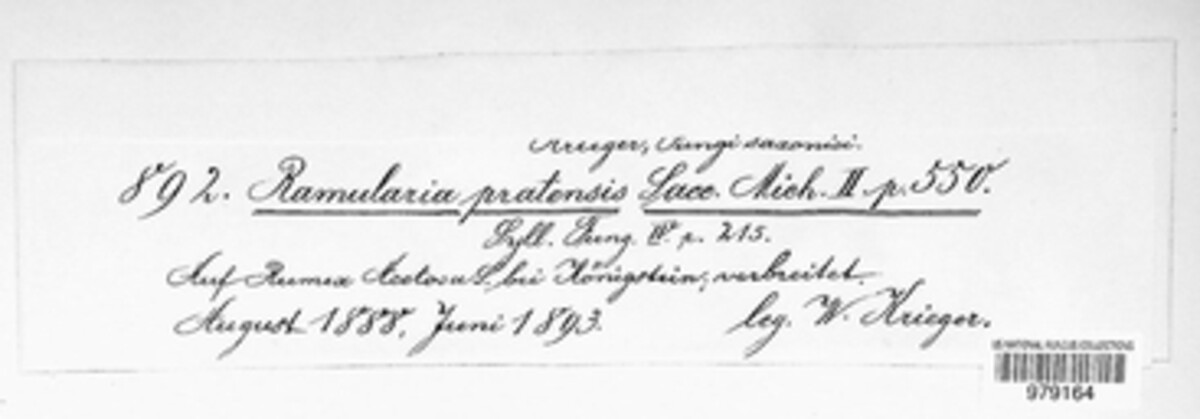 Krieger, Fungi saxonici.
892. Ramularia pratensis Sacc. Mich. II. p. 550.
Syll. Fung. IV. p. 215.
Auf Rumex Acetosa L. bei Königstein; verbreitet.
August 1888, Juni 1893. leg. W. Krieger.
US NATIONAL FUNGUS COLLECTIONS
979164